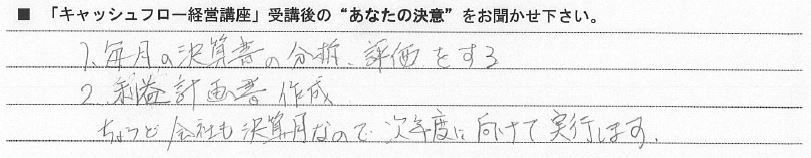 ■ 「キャッシュフロー経営講座」受講後の“あなたの決意”をお聞かせ下さい。
1、毎月の決算書の分析、評価をする
2、利益計画書作成
ちょうど会社も決算月なので次年度に向けて実行します。